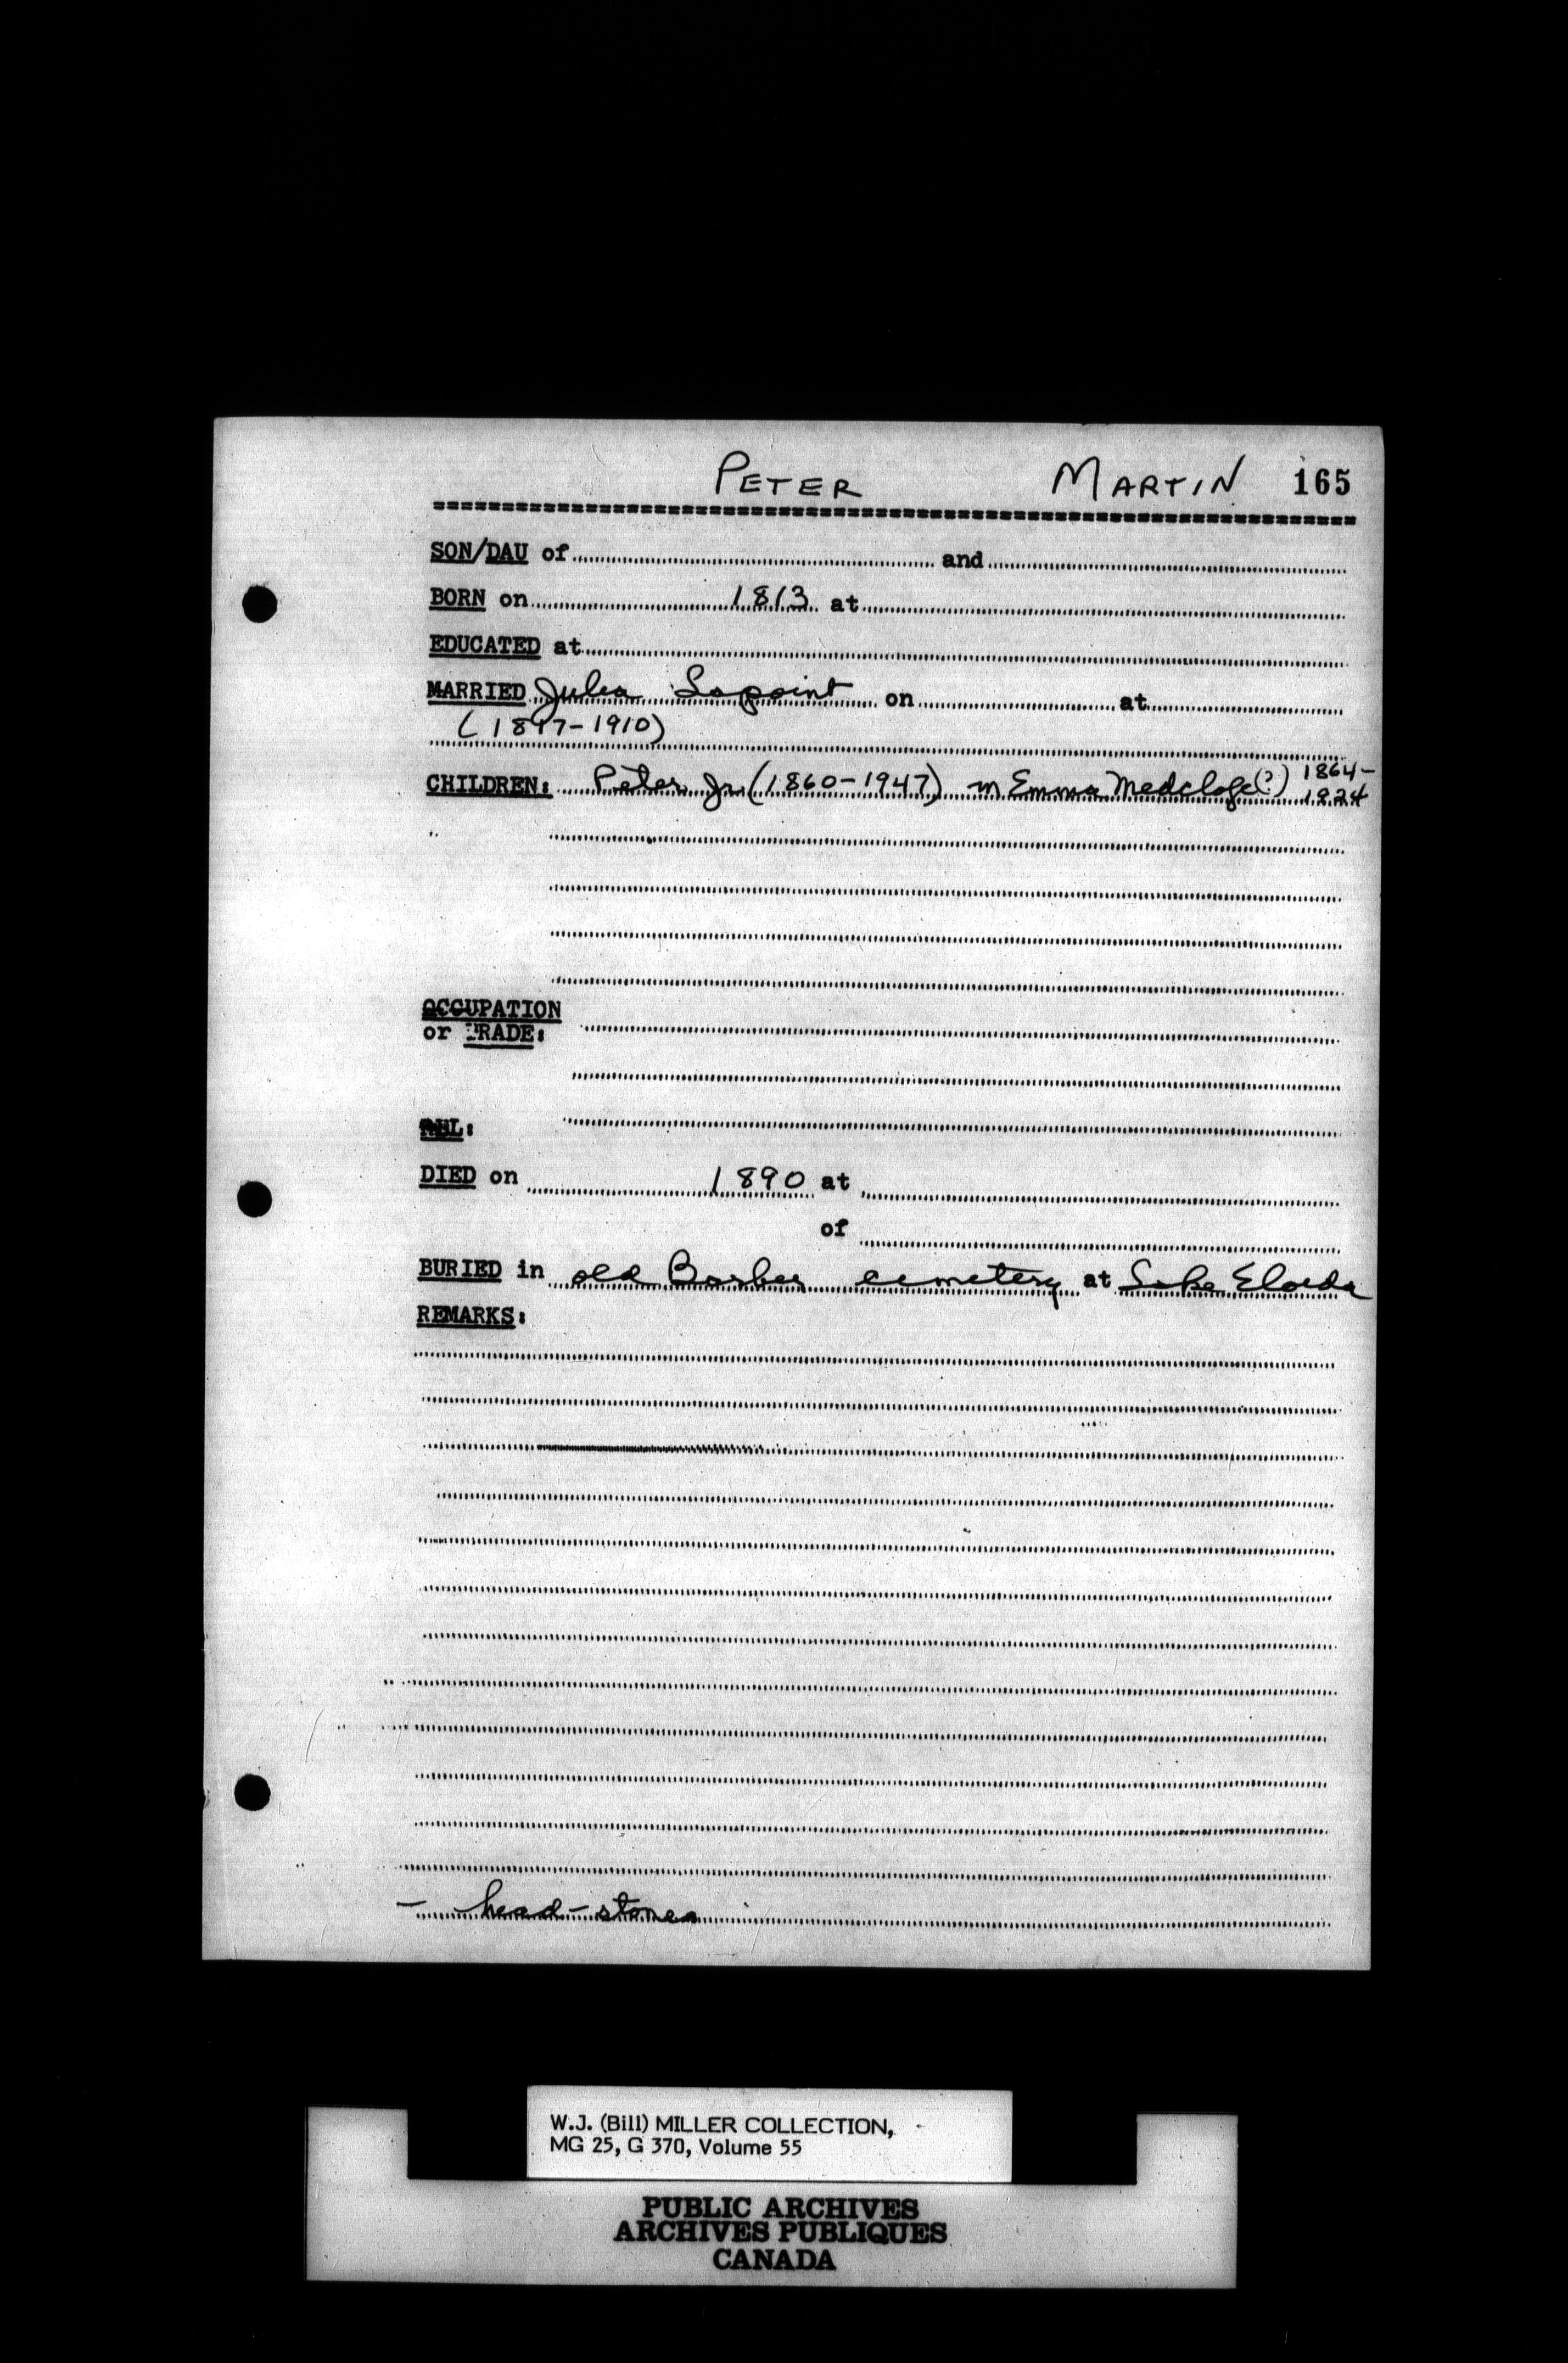 PETER MARTIN 165
SON/DAU of and
BORN on 1813 at
EDUCATED at
MARRIED Julia Lapoint on at
(1847-1910)
CHILDREN: Peter Jr. (1860-1947) m Emma (?) 1864-
1924
OCCUPATION
or TRADE:
REL:
DIED on 1890 at
of
BURIED in old Barber cemetery at Lake Eloida
REMARKS:
- head-stones
W.J. (Bill) MILLER COLLECTION,
MG 25, G 370, Volume 55
PUBLIC ARCHIVES
ARCHIVES PUBLIQUES
CANADA